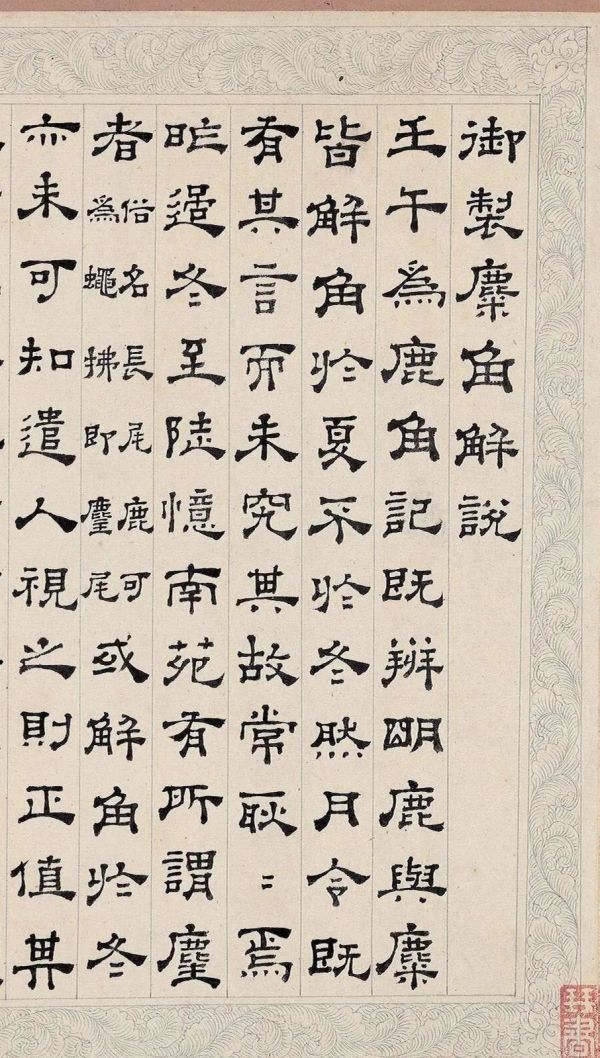 御製麋角解說
壬午為鹿角記既辨明鹿與麋
皆解角於夏不於冬然月令既
有其言而未究其故常耿〻焉
昨過冬至陡憶南苑有所謂麈
者俗名長尾鹿可為蠅拂即麈尾或解角於冬
亦未可知遣人視之則正值其